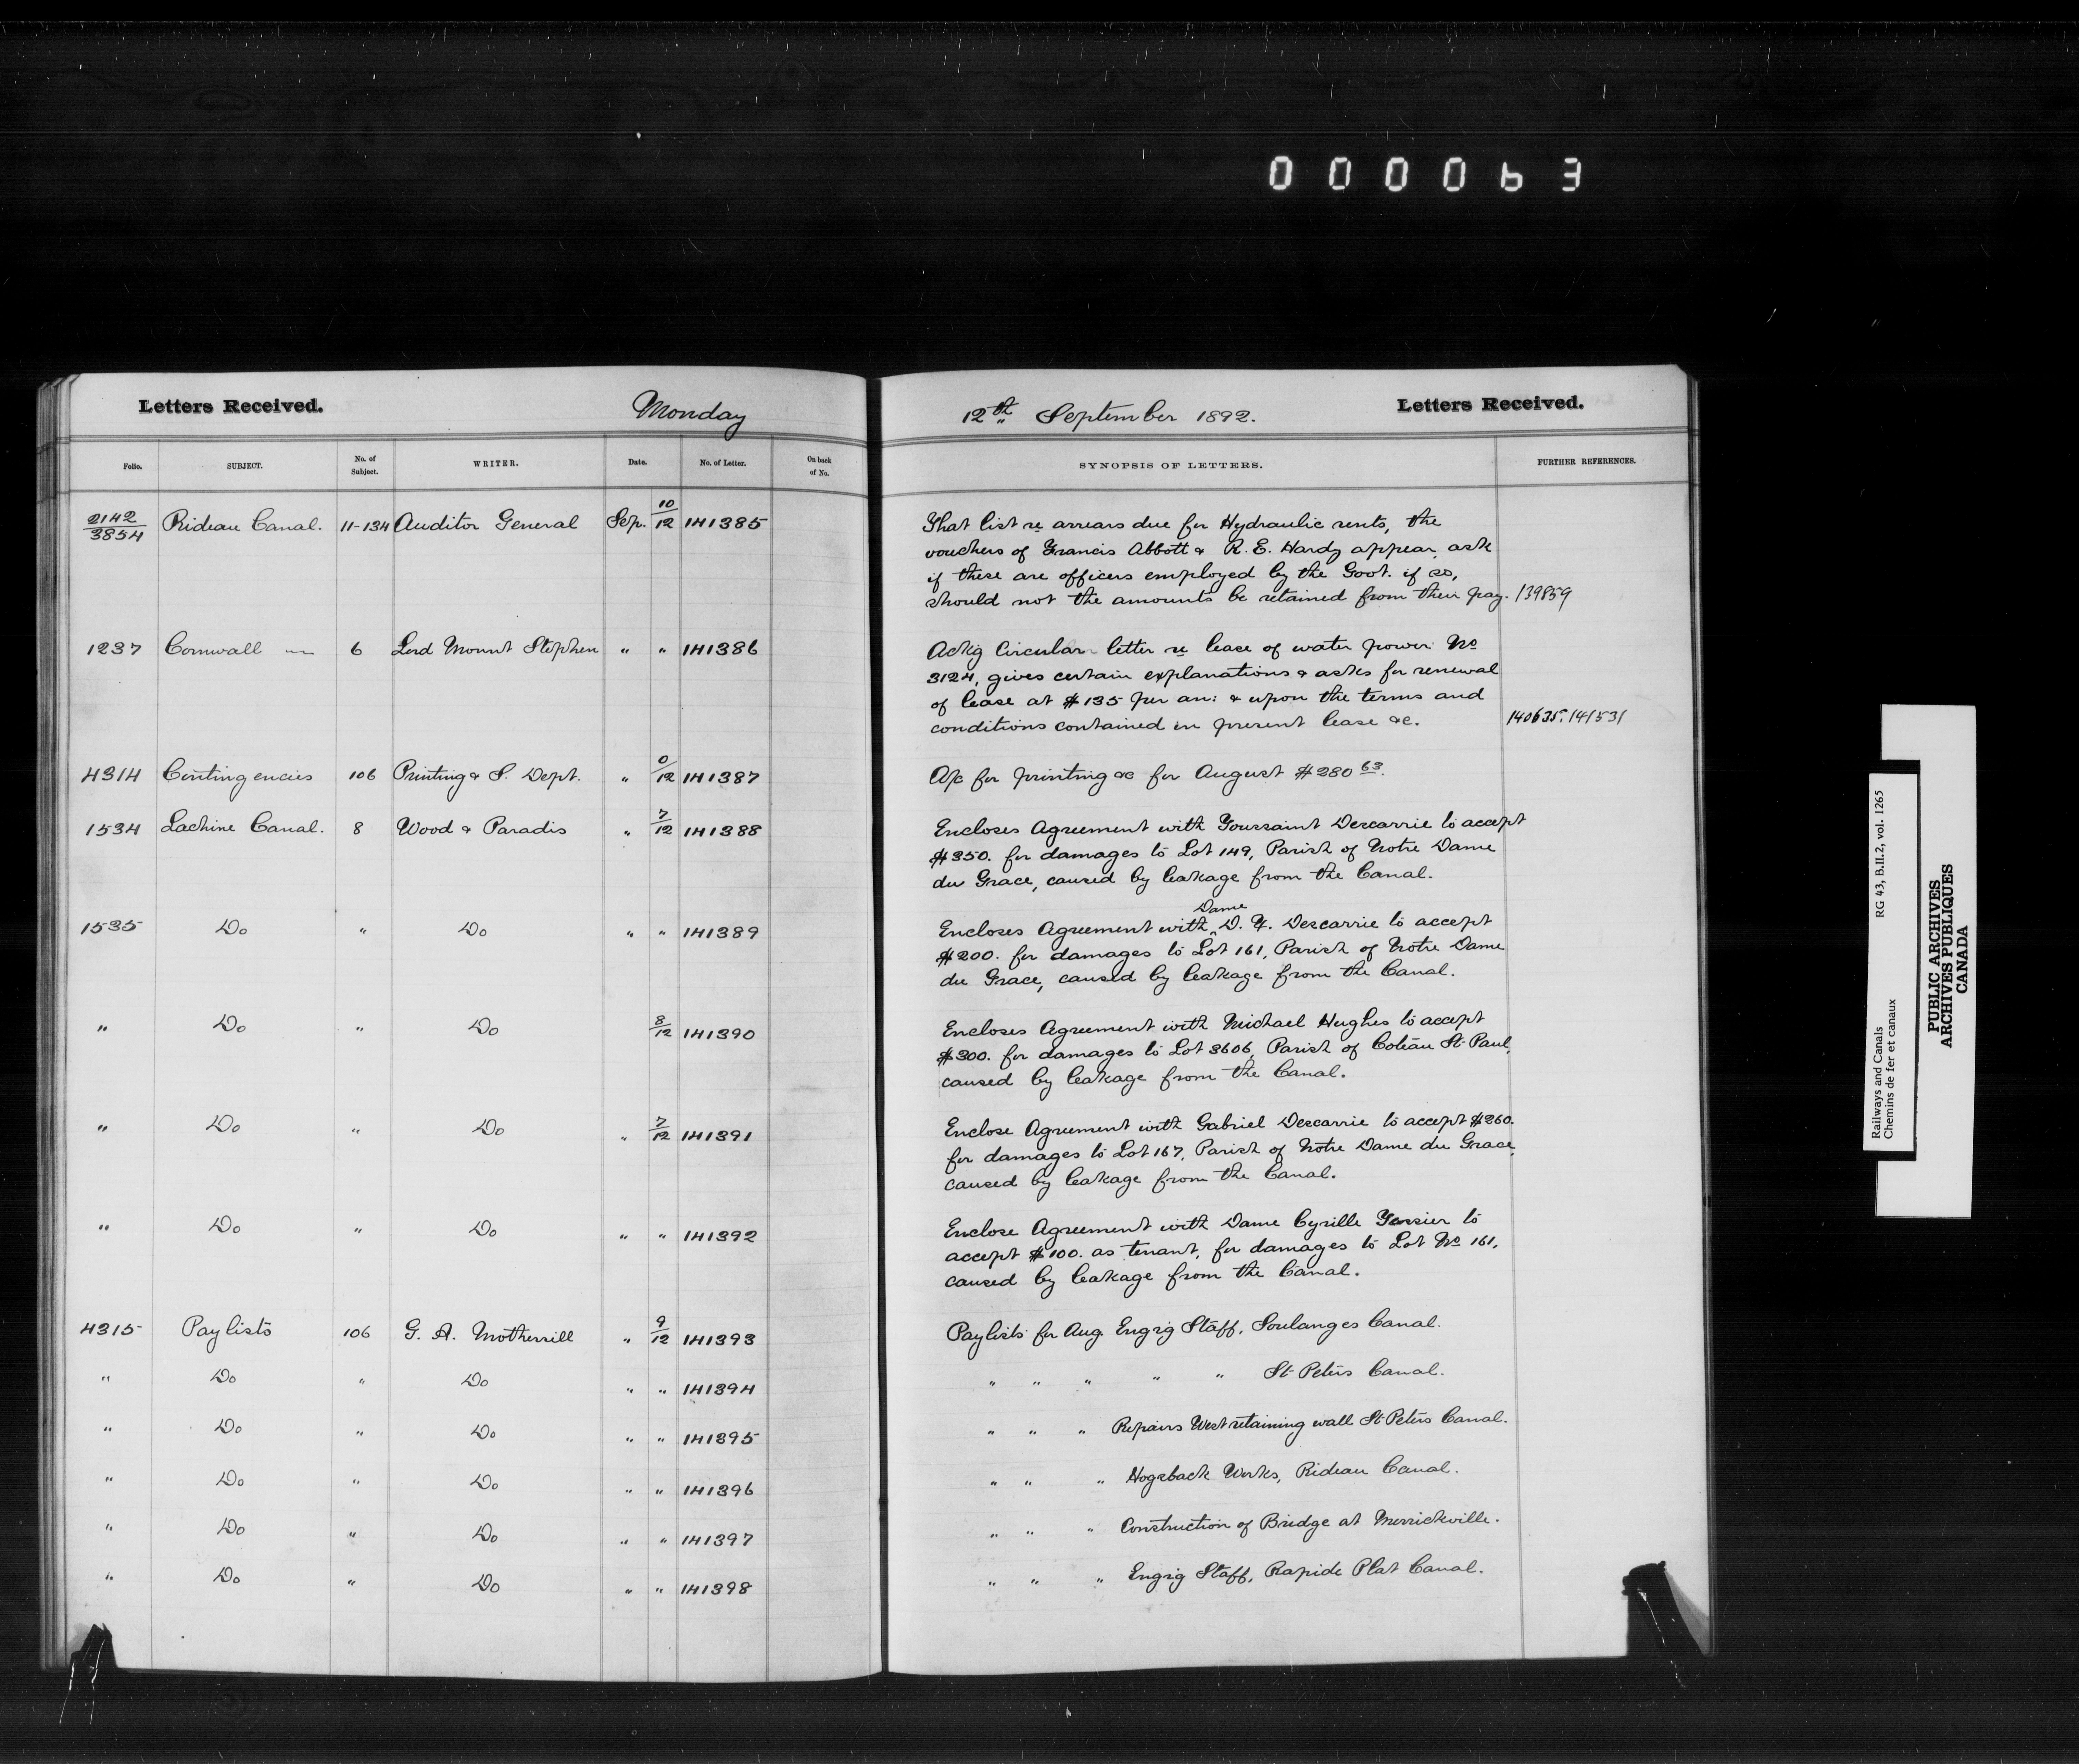 000063
Letters Received. Monday 12th September 1892. Letters Received.
Folio. SUBJECT. No. of Subject. WRITER. Date. No. of Letter. On back of No. SYNOPSIS OF LETTERS. FURTHER REFERENCES.
2142/3854 Rideau Canal. 11-134 Auditor General Sep. 10/12 141385 That list re arrears due for Hydraulic rents, the
vouchers of Francis Abbott & R. E. Hardy appear, ask
if these are officers employed by the Govt. if so,
should not the amounts be retained from their pay. 139859
1237 Cornwall 〃 6 Lord Mount Stephen " " 141386 Ackg Circular letter re lease of water power No
3124, gives certain explanations & asks for renewal
of lease at $135 per an: & upon the terms and
conditions contained in present lease &c. 140635. 141531
4314 Contingencies 106 Printing & S. Dept. " 0/12 141387 A/c for printing &c for August $280 63.
1534 Lachine Canal. 8 Wood & Paradis " 7/12 141388 Encloses Agreement with Toussaint Descarrie to accept
$350. for damages to Lot 149, Parish of Notre Dame
du Grace, caused by leakage from the Canal.
1535 Do " Do " " 141389 Encloses Agreement with Dame D. Y. Descarrie to accept
$200. for damages to Lot 161, Parish of Notre Dame
du Grace, caused by leakage from the Canal.
" Do " Do 8/12 141390 Encloses Agreement with Michael Hughes to accept
$300. for damages to Lot 3606, Parish of Coteau St Paul,
caused by leakage from the Canal.
" Do " Do " 7/12 141391 Enclose Agreement with Gabriel Descarrie to accept $260.
for damages to Lot 167, Parish of Notre Dame du Grace,
caused by leakage from the Canal.
" Do " Do " " 141392 Enclose Agreement with Dame Cyrille to
accept $100. as tenant, for damages to Lot No 161,
caused by leakage from the Canal.
4315 Paylists 106 G. A. Motherrill " 9/12 141393 Paylists for Aug. Engrg Staff, Soulanges Canal.
" Do " Do " " 141394 " " " " " St Peters Canal.
" Do " Do " " 141395 " " " Repairs West retaining wall St Peters Canal.
" Do " Do " " 141396 " " " Hogsback Works, Rideau Canal.
" Do " Do " " 141397 " " " Construction of Bridge at Merrickville.
" Do " Do " " 141398 " " " Engrg Staff, Rapide Plat Canal.
Railways and Canals RG 43, B.II.2, vol. 1265
Chemins de fer et canaux
PUBLIC ARCHIVES
ARCHIVES PUBLIQUES
CANADA